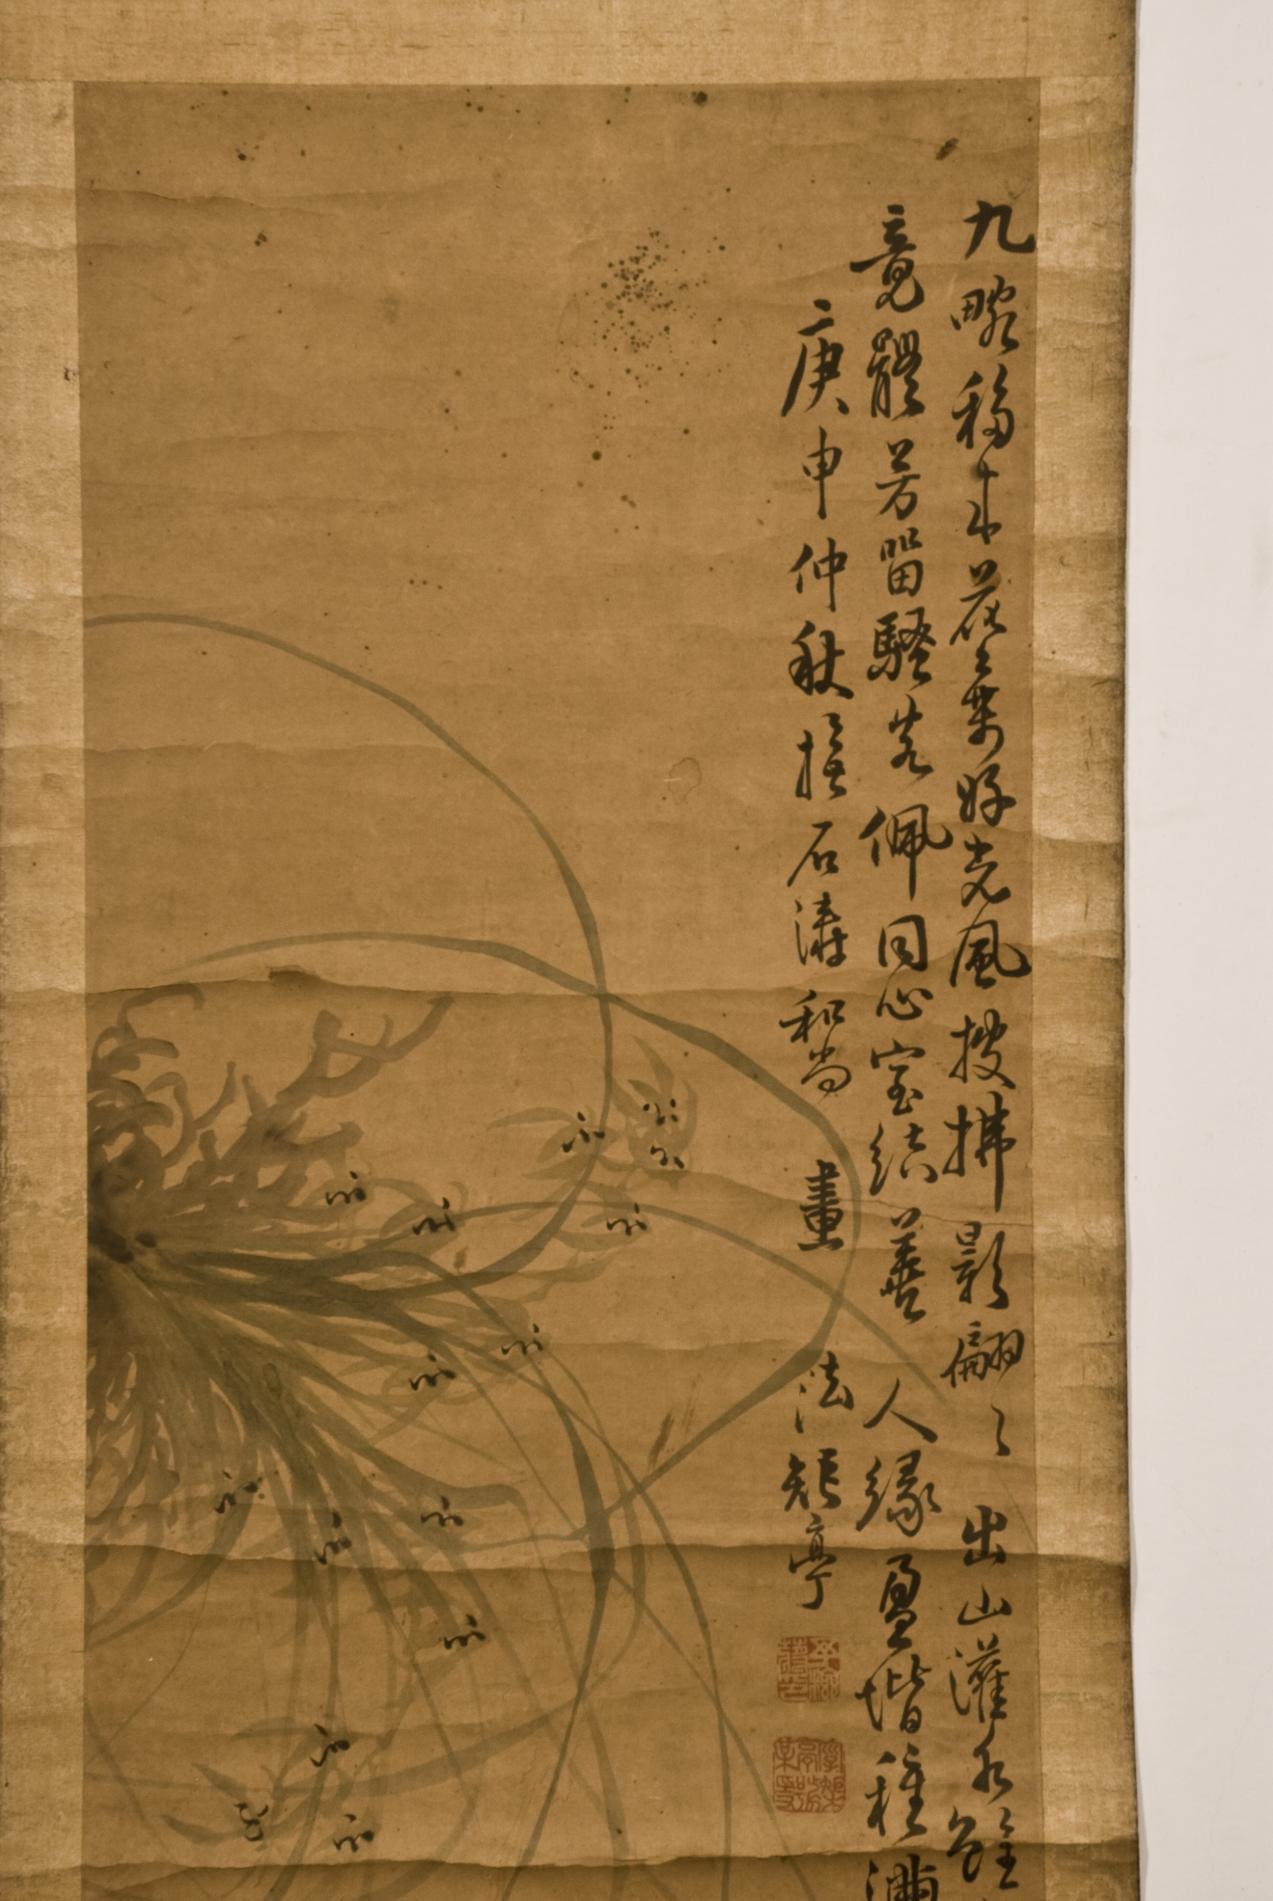 九畹移来花葉好光風披拂影翩〻出山灌水銓
竟體芳留騷客佩同心室結善人緣盈堦種滿
庚申仲秋撫石濤和尚畫法矩亭